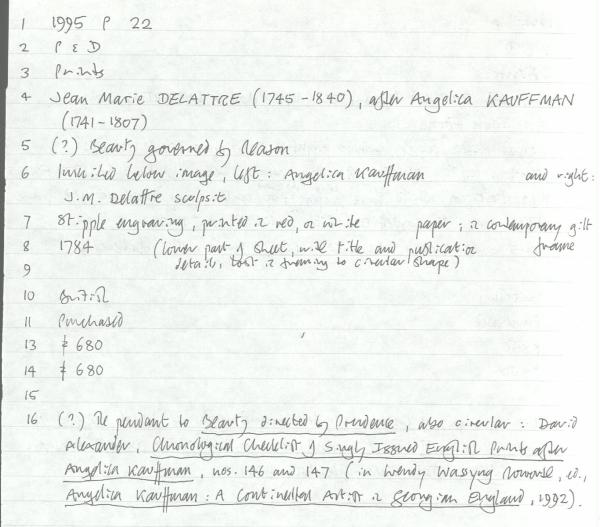 1 1995 P 22
2 P & D
3 Prints
4 Jean Marie DELATTRE (1745-1840), after Angelica KAUFFMAN
(1741-1807)
5 (?) Beauty governed by Reason
6 Inscribed below image, left: Angelica Kauffman and right:
J.M. Delattre sculpsit
7 Stipple engraving, printed in red, on white paper; in contemporary gilt
frame
8 1784 (lower part of sheet, with title and publication
details, lost in framing to circular shape)
9
10 British
11 Purchased
13 £ 680
14 £ 680
15
16 (?) The pendant to Beauty directed by Prudence, also circular: David
Alexander, Chronological Checklist of Singly Issued English Prints after
Angelica Kauffman, nos. 146 and 147 (in Wendy Wassyng Roworth, ed.,
Angelica Kauffman: A Continental Artist in Georgian England, 1992).